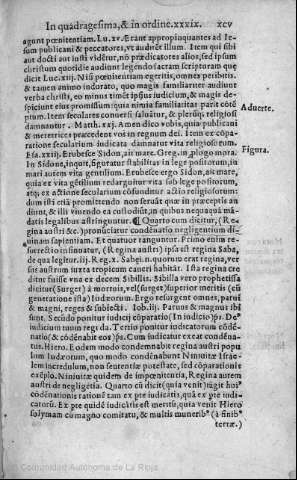 In quadragesima, & in ordine. xxxix. xcv
agunt pœnitentiam. Lu. xv. Erant appropinquantes ad Ie-
sum publicani & peccatores, vt audirẽt illum. Item qui sibi
aut docti aut iusti vidẽtur, nõ prædicatores alios, sed ipsum
christum quotidie audiunt legendo sacram scripturam quę
dicit Luc. xiij. Nisi pœnitentiam egeritis, omnes peribitis.
& tamen animo indurato, quo magis familiariter audiunt
verba christi, eo minus timẽt ipsius iudicium, & magis de-
spiciunt eius promissum: quia nimia familiaritas parit cõtẽ
ptum. Item seculares conuersi saluãtur, & plerũq; religiosi
damnantur. Matth. xxj. Amen dico vobis, quia publicani
& meretrices præcedent vos in regnum dei. Item ex cõpa-
ratione secularium iudicata damnatur vita religiosorum.
Esa. xxiij. Erubesce Sidon, ait mare. Greg. in prologo mora.
In Sidone, inquit, figuratur stabilitas in lege positorum, in
mari autem vita gentilium. Erubesce ergo Sidon, ait mare,
quia ex vita gẽtilium redarguitur vita sub lege positorum,
atq; ex actione secularium cõfunditur actio religiosorum:
dum isti etiã promittendo non seruãt quæ in præceptis au
diunt, & illi viuendo ea custodiũt, in quibus nequaquã mã-
datis legalibus astringuntur. ¶ Quarto cum dicitur, (Re
gina austri &c.) pronũciatur condẽnatio negligentium di-
uinam sapientiam. Et quatuor tanguntur. Primo enim re-
surrectio insinuatur, (Regina austri) ipsa est regina Saba,
de qua legitur. iij. Reg. x. Sabei. n. quorum erat regina, ver
sus austrum iuxta tropicum cancri habitãt. Ista regina cre
ditur fuisse vna ex decem Sibillis. Sibilla vero prophetissa
dicitur (surget) à mortuis, vel (surget) superior meritis (cũ
generatione ista) Iudæorum. Ergo resurgent omnes, parui
& magni, reges & subiecti. Iob. iij. Paruus & magnus ibi
sunt. Secũdo ponitur iudicij cõparatio (In iudicio) ps. De9
iudicium tuum regi da. Tertio ponitur iudicatorum cõdẽ-
natio (& cõdẽnabit eos) ps. Cum iudicatur exeat condẽna-
tus. Hiero. Eodem modo condemnabit regina austri popu
lum Iudæorum, quo modo condẽnabunt Niniuitæ Israe-
lem incredulum, non sententiæ potestate, sed cõparationis
exẽplo. Niniuitæ quidem de impœnitentia, Regina autem
austri de negligẽtia. Quarto cũ dicit (quia venit) tãgit hoi9
cõdẽnationis rationẽ tam ex pte iudicãtis, quã ex pte iudi-
catorũ. Ex pte quidẽ iudicãtis est meritũ, quia venit Hiero
solymam cũ magno comitatu, & multis munerib9 (à finib9
terræ.)
Aduerte.
Figura.
Comunidad Autónoma de La Rioja